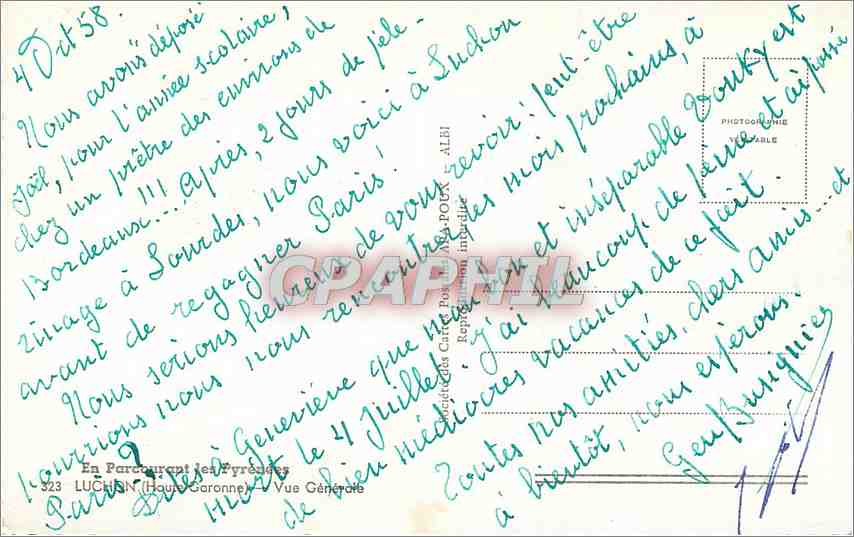 4 Oct 58.
Nous avons déposé
Joël, pour l'année scolaire,
chez un prêtre des environs de
Bordeaux...!!! Après, 2 jours de péle-
rinage à Lourdes, nous voici à Luchon
avant de regagner Paris!
Nous serions heureux de vous revoir: peut-être
pourrions nous nous rencontrer les mois prochains, à
Paris?
Dites à Geneviève que mon bon et inséparable Vouky est
mort le 4 Juillet. J'ai beaucoup de peine et ai passé
de bien médiocres vacances de ce fait.
Toutes nos amitiés, chers amis... et
à bientôt, nous espérons.
En Parcourant les Pyrénées
323 LUCHON (Haute-Garonne) - Vue Générale
Société des Cartes Postales APA-POUX - ALBI
Reproduction interdite
PHOTOGRAPHIE
VÉRITABLE
CPAPHIL